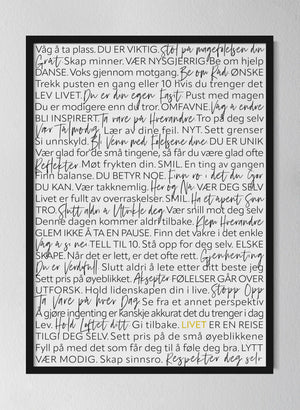 Våg å ta plass. DU ER VIKTIG. Stol på magefølelsen din
Gråt Skap minner. VÆR NYSGJERRIG! Be om hjelp
DANSE. Voks gjennom motgang. Be om Råd ØNSKE
Trekk pusten en gang eller 10 hvis du trenger det
LEV LIVET. Du er din egen Fasit. Pust med magen
Du er modigere enn du tror. OMFAVNE. Våg å endre
BLI INSPIRERT. Ta vare på Hverandre Tro på deg selv
Vær Tålmodig Lær av dine feil. NYT. Sett grenser
Si unnskyld. Bli Venn med Følelsene dine DU ER UNIK
Vær glad for de små tingene, så får du være glad ofte
Reflekter Møt frykten din. SMIL. En ting av gangen
Finn balanse. DU BETYR NOE. Finn ro i det du Gjør
DU KAN. Vær takknemlig. Her og Nå VÆR DEG SELV
Livet er fullt av overraskelser. SMIL. Ha et åpent Sinn
TRO. Slutt aldri å Utvikle deg Vær snill mot deg selv
Denne dagen kommer aldri tilbake. Klem Hverandre
GLEM IKKE Å TA EN PAUSE. Finn det vakre i det enkle
Våg å si nei TELL TIL 10. Stå opp for deg selv. ELSKE
SKAPE. Når det er lett, er det ofte rett. Gjenhenting
Du er Verdifull Slutt aldri å lete etter ditt beste jeg
Sett pris på øyeblikket. Aksepter FØLELSER GÅR OVER
UTFORSK. Hold lidenskapen din i live. Stopp Opp
Ta Vare på hver Dag Se fra et annet perspektiv
Å gjøre ingenting er kanskje akkurat det du trenger i dag
Lev. Hold Løftet ditt Gi tilbake. LIVET ER EN REISE
TILGI DEG SELV. Sett pris på de små øyeblikkene
Fyll på med det som får deg til å føle deg bra. LYTT
VÆR MODIG. Skap sinnsro. Respekter deg selv